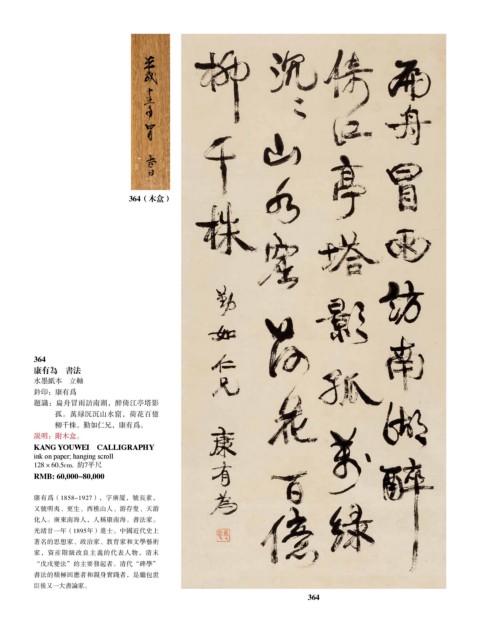 364（木盒）
364
康有為　書法
水墨紙本　立軸
鈐印：康有爲
題識：扁舟冒雨訪南湖，醉倚江亭塔影
孤。萬綠沉沉山水窟，荷花百億
柳千株。勤如仁兄，康有爲。
說明：附木盒。
KANG YOUWEI　CALLIGRAPHY
ink on paper; hanging scroll
128×60.5cm.　約7平尺
RMB: 60,000–80,000
康有爲（1858-1927），字廣厦，號長素，
又號明夷、更生、西樵山人、游存叟、天游
化人，廣東南海人，人稱康南海。書法家。
光緒廿一年（1895年）進士。中國近代史上
著名的思想家、政治家、教育家和文學藝術
家，資産階級改良主義的代表人物，清末
“戊戌變法”的主要發起者。清代“碑學”
書法的積極回應者和親身實踐者，是繼包世
臣後又一大書論家。
扁舟冒雨訪南湖醉
倚江亭塔影孤萬綠
沉沉山水窟荷花百億
柳千株
勤如仁兄
康有為
364